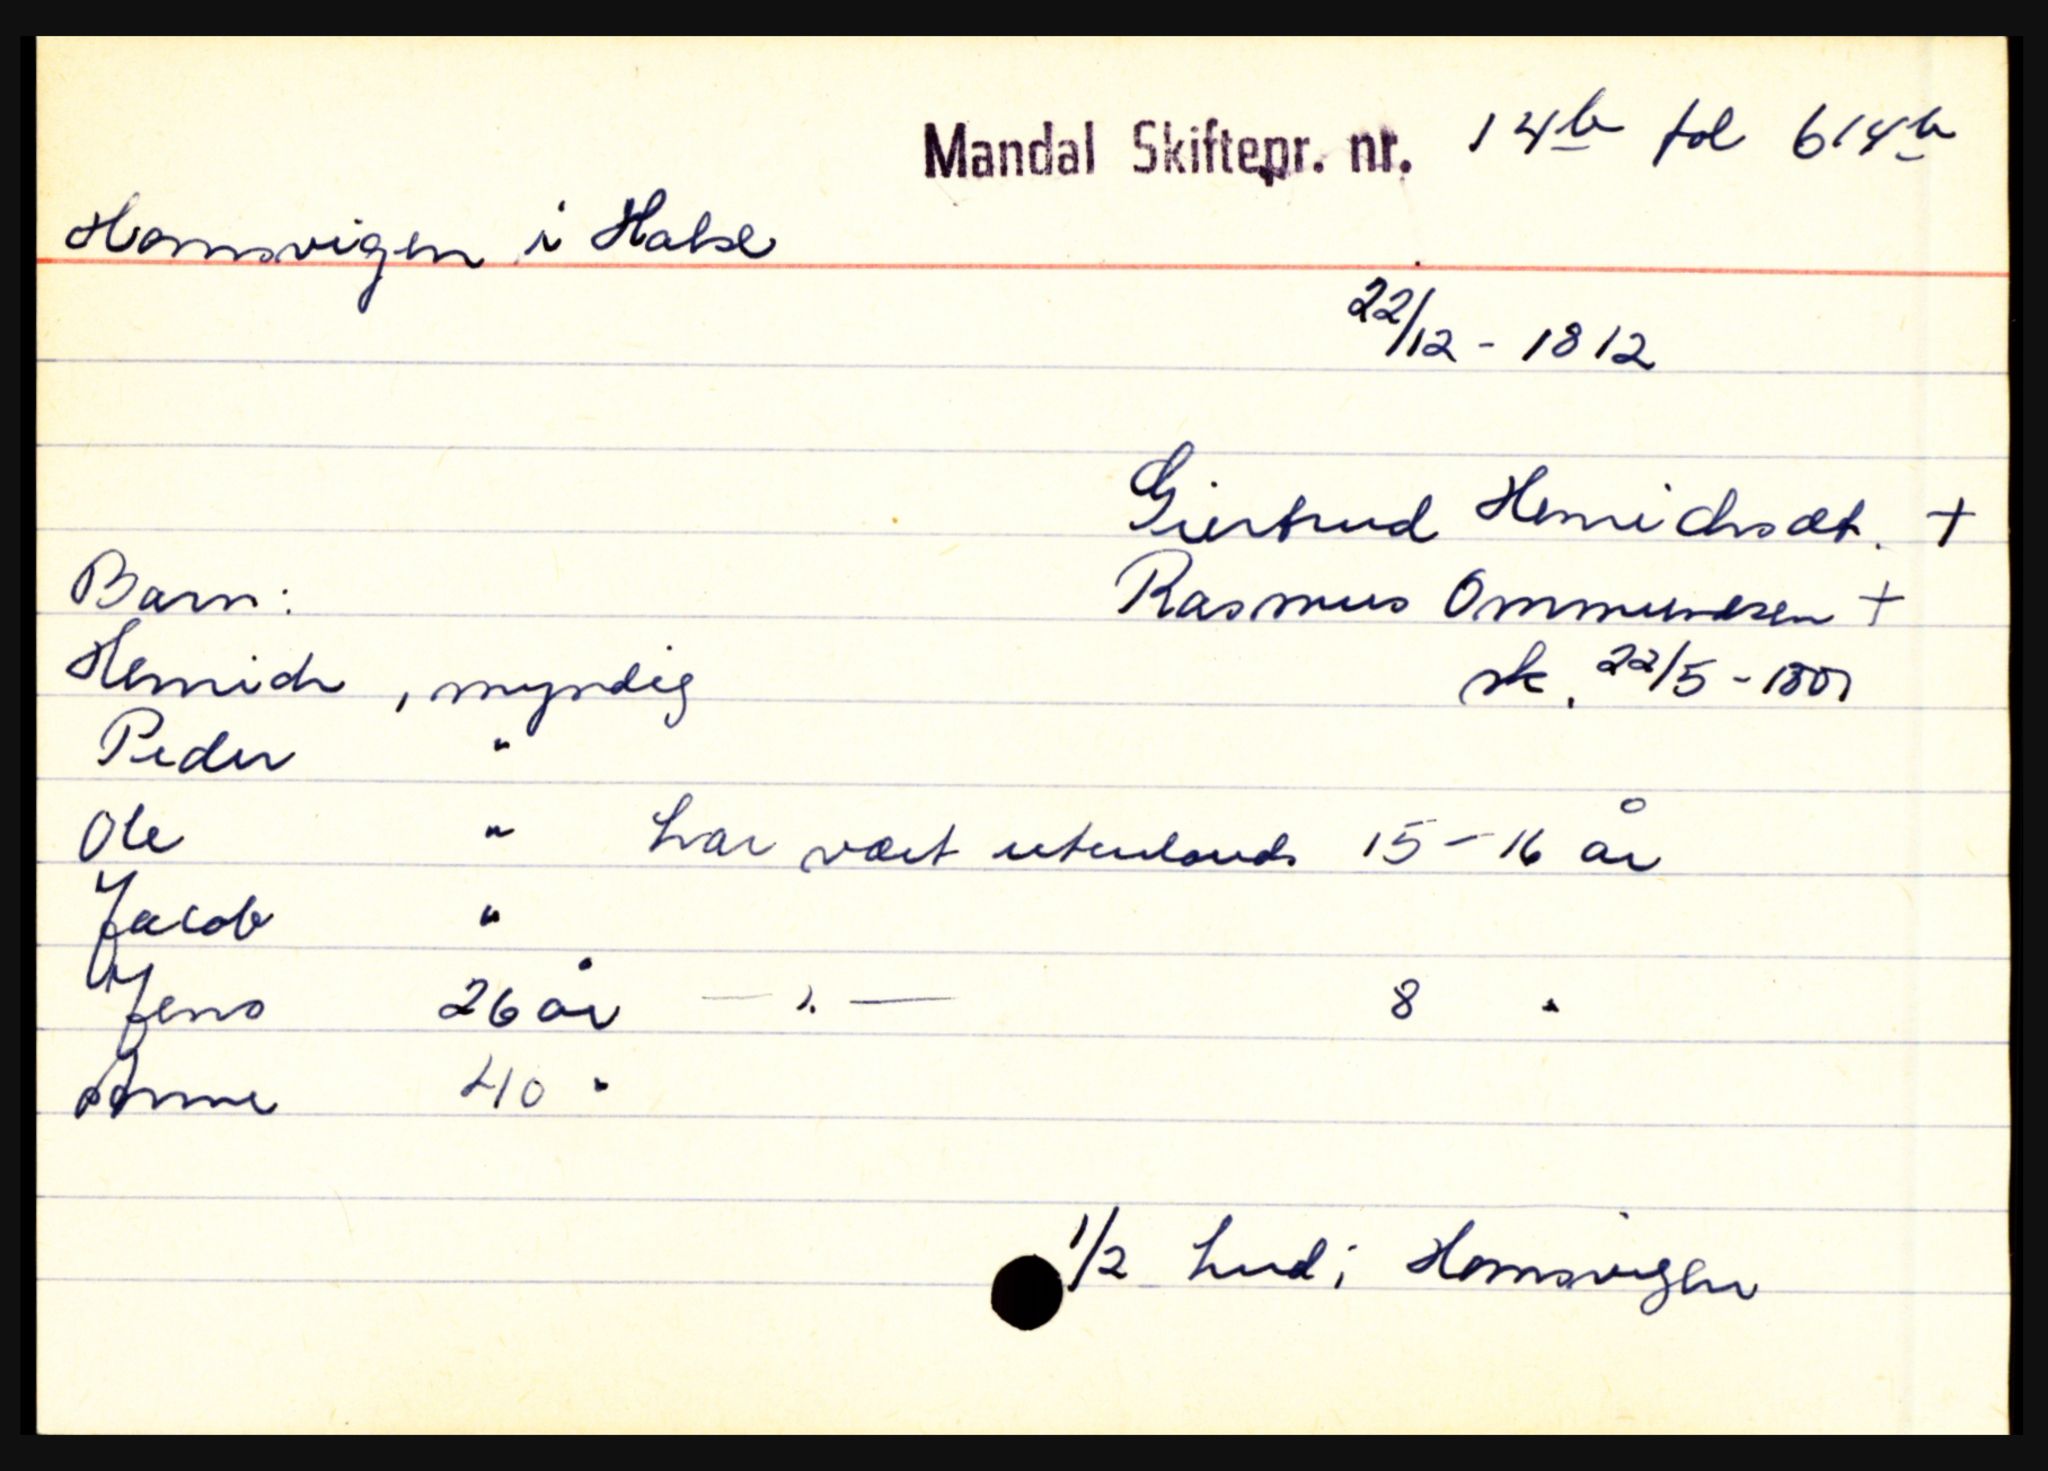 Mandal Skiftepr. nr. 14b fol 614b
Homsvigen i Halse
22/12 - 1812
Giertrud Henrichsdt. +
Barn:
Rasmus Ommundsen +
Henrich, myndig
sk. 22/5 - 1801
Peder "
Ole " har vært utenlands 15 - 16 år
Jacob "
Jens 26 år — " — 8 "
Anne 40 "
1/2 hud i Homsvigen